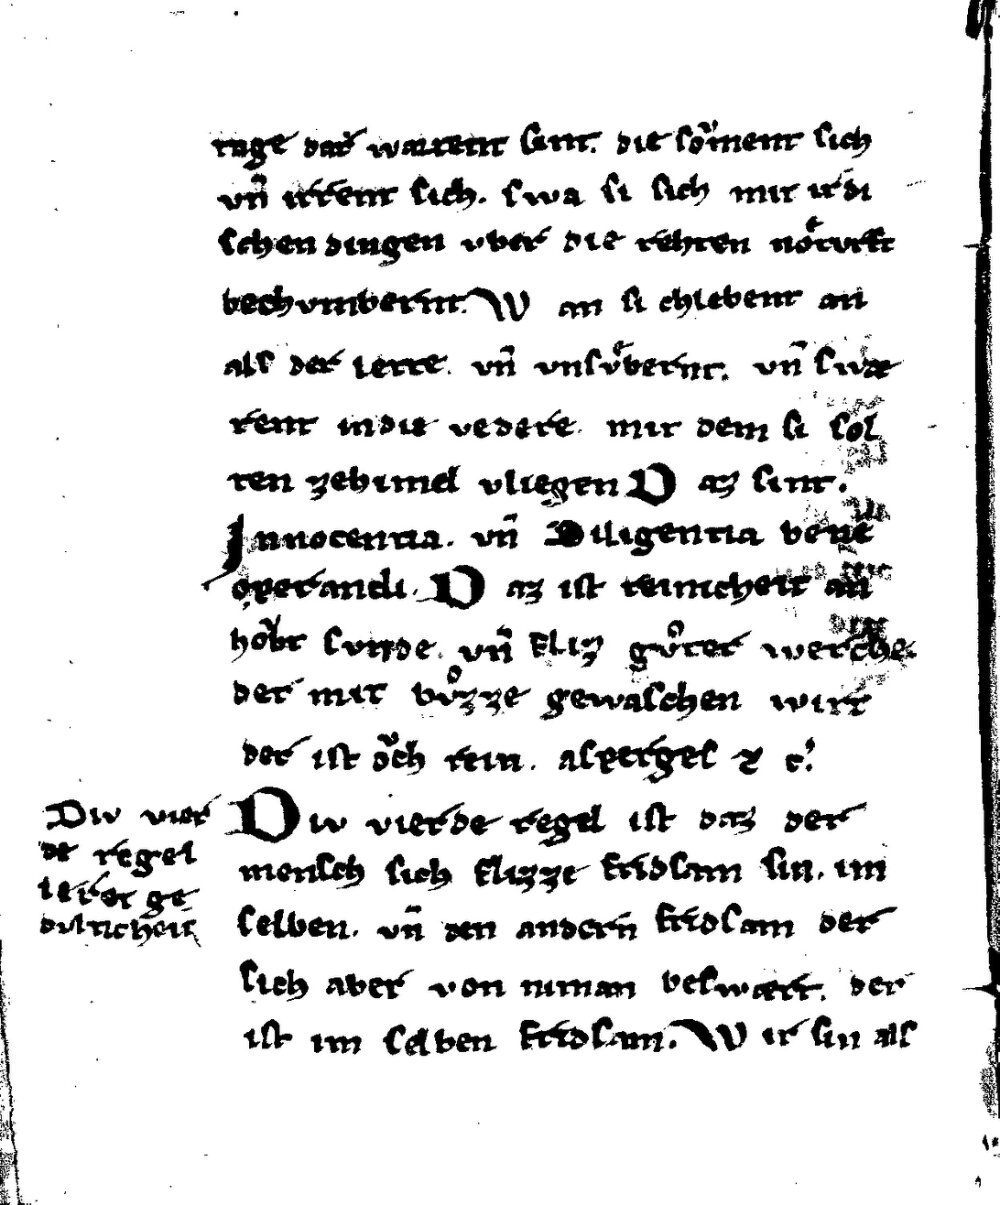 tage dar wartent sint. die soͮment sich
vn̄ irrent sich. swa si sich mit irdi
schen dingen vber die rehten noͤturft
bechvmbernt. Wan si chlebent an
als der lette. vn̄ vnsvͤbernt. vn̄ swæ
rent indie vedere. mit dem si sol
ten zehimel vliegen Daz sint.
Innocentia. vn̄ Diligentia bene
operandi. Daz ist reinicheit an̄
hoͮbt svnde. vn̄ fliz gvͦter werche.
der mit bvͦzze gewaschen wirt
der ist oͮch rein. asperges ⁊ c̾.
Diw vierde regel ist daz der
mensch sich flizze fridsam sin. im
selben. vn̄ den andern fridsam der
sich aber von niman beswært. der
ist im selben fridsam. Wir sin als
Diw vier
de regel
leret ge
dvlticheit